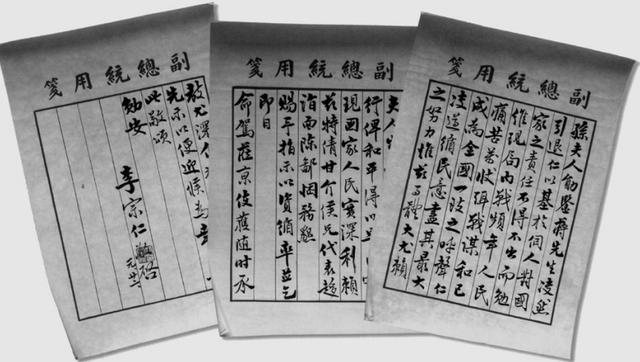 副總統用箋
孫夫人勛鑒蔣先生決然
引退仁以基於個人對國
家之責任不得不出而勉
維現局內戰頻年人民
痛苦萬狀弭戰謀和已
成為全國一致之呼聲仁
決遵循民意盡其最大
之努力惟茲事體大尤賴
副總統用箋
夫人
行俾和平得以早
現國家人民實深利賴
茲特請甘介侯兄代表趨
詣面陳鄙悃務懇
賜予指示以資循率並乞
即日
命駕蒞京俾獲隨時承
副總統用箋
教尤深
先示以便迎候專
此敬頌
勛安
李宗仁 啟
元廿一